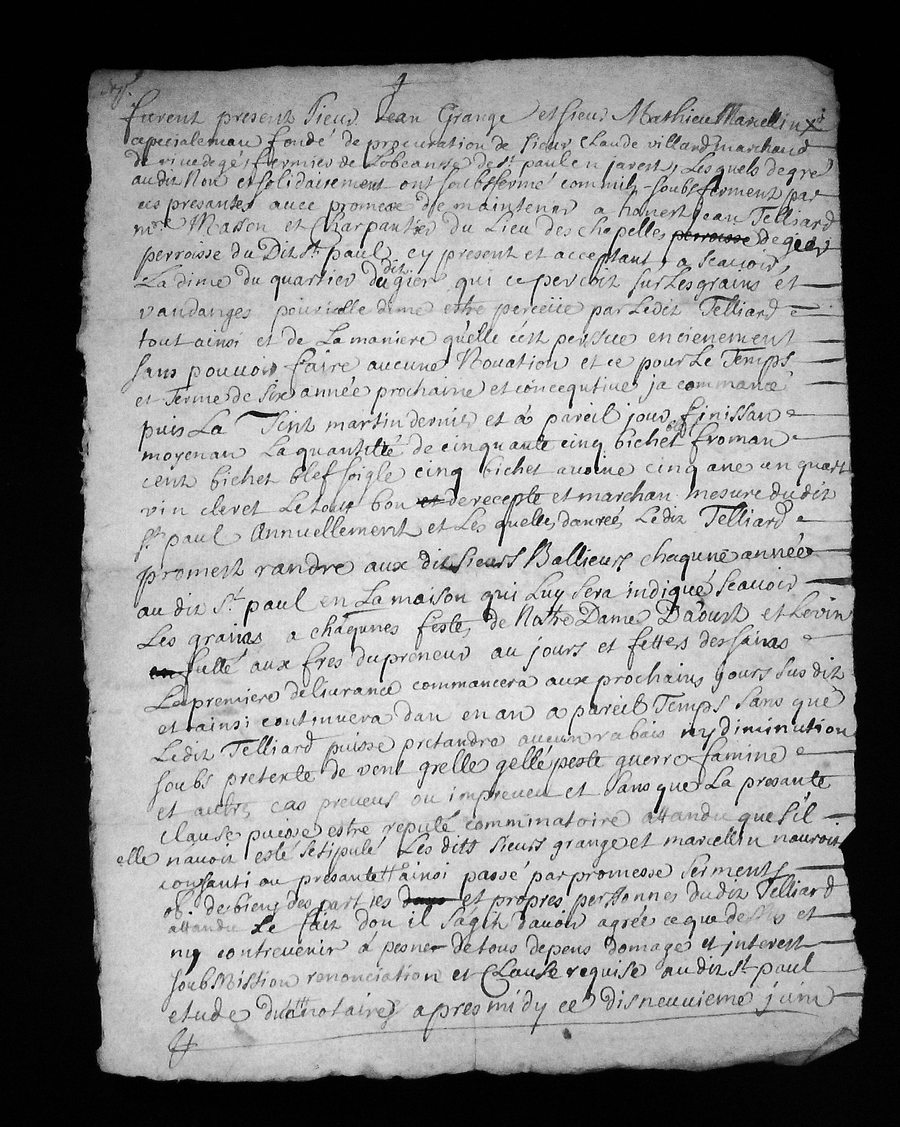 furent present Sieur Jean Grange et sieur Mathieu Marcellin
especialemau fondé de procuration de sieur Claude villard marchand
de rivedegé, fermier de Lobeansse de st. paul en jarest, Les quels de gré
audit Non et solidairement ont soubsfermé comm ilz soubsferment par
ces presantes avec promesse de maintenir a honest jean Telliard
mre Masson et Charpantier du Lieu des chapelles perroisse de gear
perroisse du Dit st. paul cy present et acceptant, a scavoir
La dime du quartier du dit gier qui ce percoit sur Les grains et
vandanges pour icelle dime estre perceüe par Ledit Telliard
tout ainsi et de La maniere quelle cest perssue encienement
sans pouvoir faire aucune Novation et ce pour Le Temps
et Terme de six année prochaine et concequtive ja commancé
puis La Sint martin dernier et a pareil jour finissan
moyenan La quantitté de cinquante cinq bichet bled froman
cent bichet blef soigle cinq bichet avoine cinq ane un quart
vin cleret Le tout bon et de recepte et marchan mesure du dit
st. paul Annuellement et Les quelles danrées Ledit Telliard
promest randre aux dit sieurs Ballieurs chaqune année
au dit st. paul en La maison qui Luy sera indiqué scavoir
Les grains a chaqunes festes de Nottre Dame Daoust et Levin
en futté aux fres du preneur au jours et fettes des saints
Le premiere delivrance commancera aux prochains jours sus dit
et ainsi continuera dan en an a pareil Temps sans que
Ledit Telliard puisse pretandre aucun rabais ny diminution
soubs pretexte de vent grelle gellé peste guerre famine
et autres cas preveus ou impreveu et sans que La presante
clause puisse estre reputé comminatoire attandu que s'il
elle navoit esté s'estipulé Les dits sieurs grange et marcellin nauroit
consanti au presante ainsi passé par promesse serment
ob. de biens des parties et propres perssonnes du dit Telliard
attandu Le fait don il sagit davoir agreé ce que dessus et
ny contrevenir a pesne de tous depens domage et interest
soubmission renonciation et Clause requise au dit st. paul
etude du notaire apres midy ce disneuvieme juin